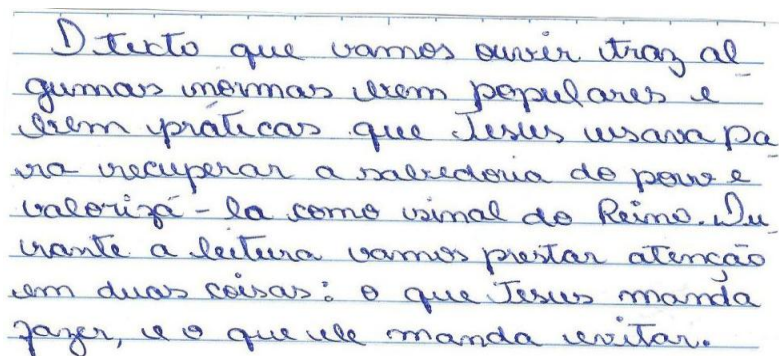 O texto que vamos ouvir traz al
gumas normas bem populares e
bem práticas que Jesus usava pa
ra recuperar a sabedoria do povo e
valorizá-la como sinal do Reino. Du
rante a leitura vamos prestar atenção
em duas coisas: o que Jesus manda
fazer, e o que ele manda evitar.